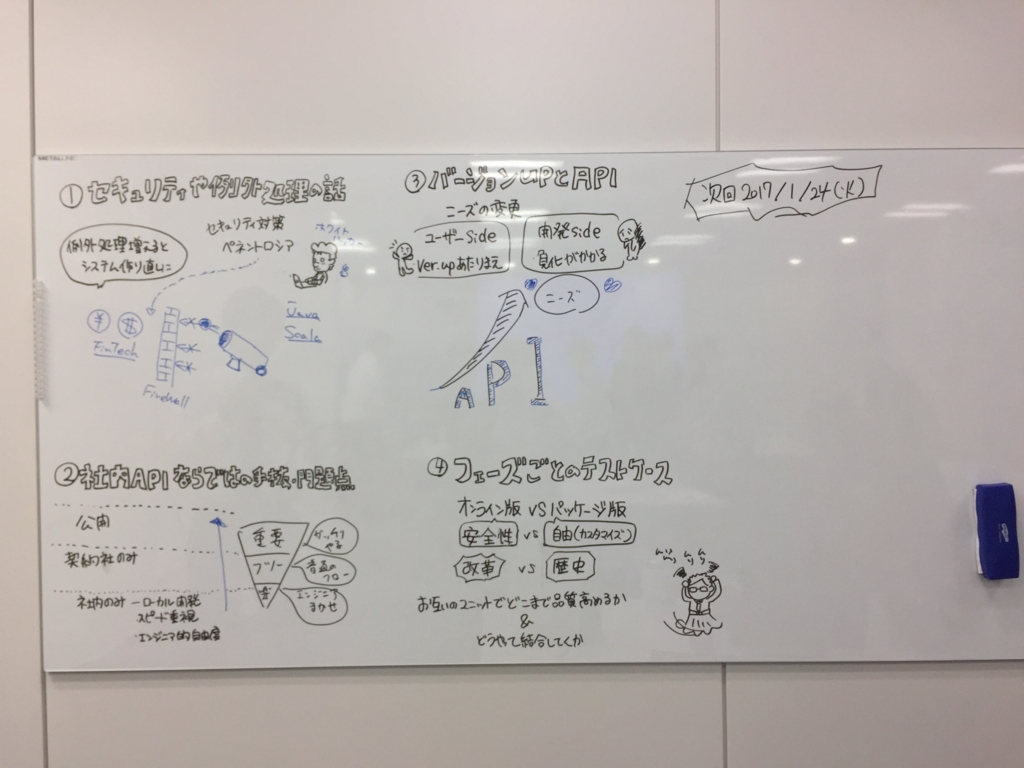 ① セキュリティや例外処理の話
セキュリティ対策
ペネトロシア
例外処理増えると
システム作り直しに
ホワイト
¥ $
FinTech
Firewall
Java
Scala
② 社内APIならではの手法・問題点
公開
契約社のみ
社内のみ ーローカル開発
スピード重視
・エンジニア的自由度
重要
フリー
ガッツリ
やる
普通の
フロー
エンジニア
まかせ
③ バージョンUPとAPI
ニーズの変更
ユーザーSide
Ver.upあたりまえ
開発side
負化がかかる
ニーズ
API
④ フェーズごとのテストケース
オンライン版 VS パッケージ版
安全性 vs 自由(カスタマイズ)
改革 vs 歴史
お互いのユニットでどこまで品質高めるか
&
どうやって結合してくか
次回 2017/1/24(火)